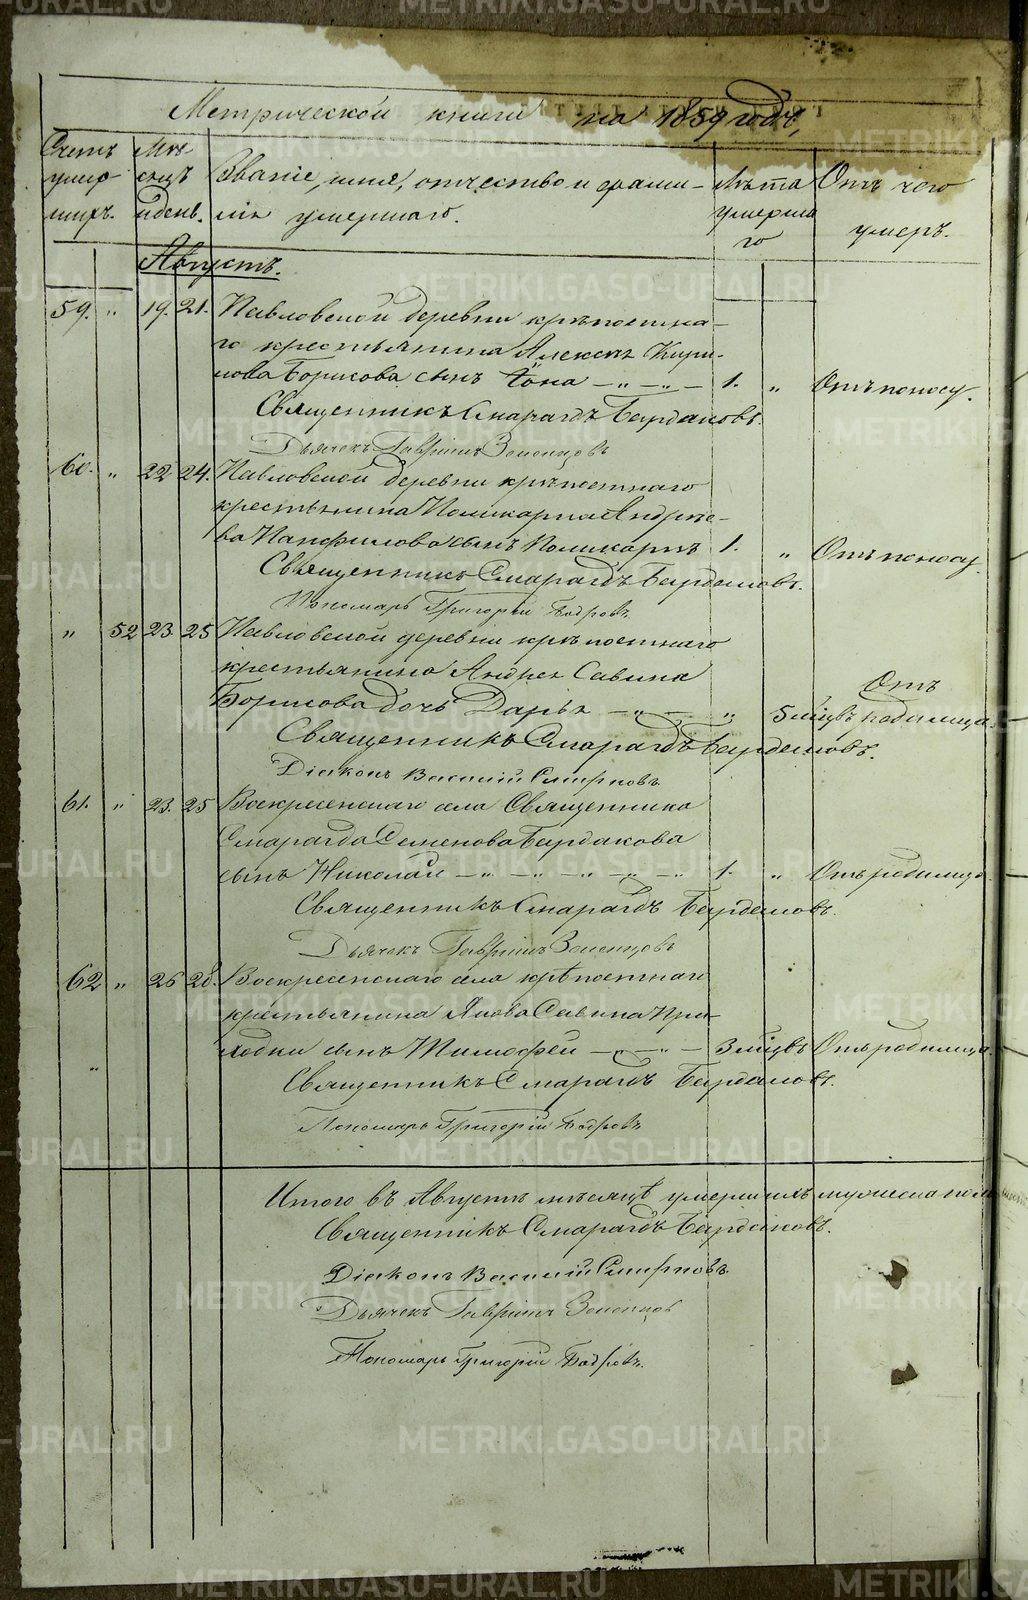 Метрической книги на 1859 годъ,
Счетъ умершихъ.
Мѣсяцъ и день.
Званіе, имя, отчество и фамилія умершаго.
Лѣта умершаго
Отъ чего умеръ.
Августъ.
59. „ 19. 21. Павловской деревни крѣпостна-
го крестьянина Алексѣя Кири-
лова Борисова сынъ Іона — „ — „ — 1. „ Отъ поносу.
Священникъ Смарагдъ Бардаковъ.
Дьячекъ Гавріилъ
60. „ 22 24. Павловской деревни крѣпостнаго
крестьянина Поликарпа Андрѣе-
ва Панфилова сынъ Поликарпъ 1. „ Отъ поносу.
Священникъ Смарагдъ Бардаковъ.
Пономарь Григорій
„ 52 23 25 Павловской деревни крѣпостнаго
крестьянина Андрея Савина
Борисова дочь Дарья — „ — „ 5 мѣцвъ Отъ родимица.
Священникъ Смарагдъ Бардаковъ.
Діаконъ Василій Смирновъ
61. „ 23. 25 Воскресенскаго села Священника
Смарагда Семенова Бардакова
сынъ Николай — „ — „ — „ — „ 1. „ Отъ родимица.
Священникъ Смарагдъ Бардаковъ.
Дьячекъ Гавріилъ
62 „ 26 28. Воскресенскаго села крѣпостнаго
крестьянина Якова Савина При-
ходки сынъ Тимофей — „ — „ — 3 мѣцвъ Отъ родимица.
„
Священникъ Смарагдъ Бардаковъ.
Пономарь Григорій
Итого въ Августѣ мѣсяцѣ умершихъ мужеска пола
Священникъ Смарагдъ Бардаковъ.
Діаконъ Василій Смирновъ
Дьячекъ Гавріилъ
Пономарь Григорій
METRIKI.GASO-URAL.RU